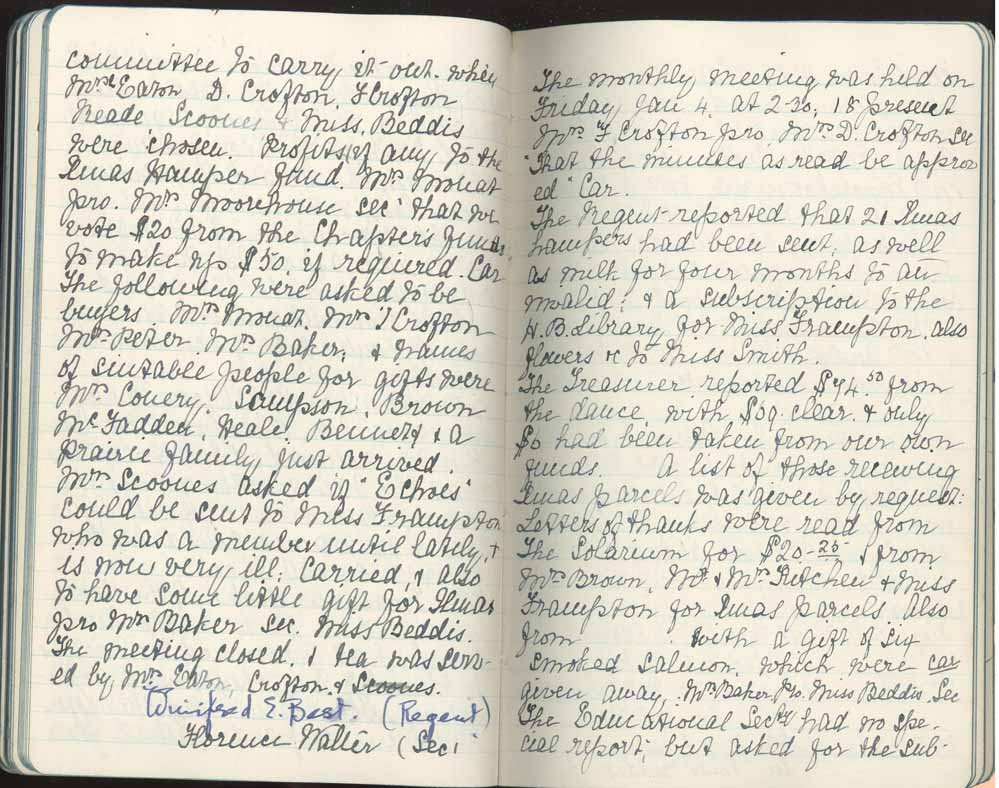 committee to carry it out. when
Mrs Eaton, D. Crofton, F Crofton
Reade Scoones & Miss Beddis
were chosen. Profits if any to the
Xmas Hamper fund. Mrs Mouat
pro. Mrs Moorehouse sec' that we
vote $20 from the Chapters funds
to make up $50, if required. Car
The following were asked to be
buyers Mrs Mouat, Mrs Crofton
Mrs Peter, Mrs Baker, & names
of suitable people for gifts were
Mrs Couery, Sampson, Brown
McFadden, Heale, Bennett & a
Prairie family just arrived.
Mrs Scoones asked if "Echoes"
could be sent to Miss Frampton
who was a member until lately, &
is now very ill; Carried, & also
to have some little gift for Xmas
pro Mrs Baker sec. Miss Beddis.
The meeting closed, & tea was serv-
ed by Mrs Eaton, Crofton, & Scoones.
Winifred E. Best. (Regent)
Florence Walter (Sec'
The monthly meeting was held on
Friday Jan 4, at 2-30, 18 present
Mrs F Crofton pro, Mrs D. Crofton sec
"That the minutes as read be approv
ed" Car.
The Regent reported that 21 Xmas
hampers had been sent, as well
as milk for four months to an
invalid; & a subscription to the
H.B. Library, for Miss Frampton, also
flowers &c to Miss Smith.
The Treasurer reported $94.50 from
the dance, with $69. clear, & only
$6 had been taken from our own
funds. A list of those receiving
Xmas parcels was given by request:
Letters of thanks were read from
The Solarium for $20-25 & from
Mrs Brown, Mr & Mrs Kitchen & Miss
Frampton for Xmas parcels, also
from with a gift of six
smoked salmon, which were car
given away. Mrs Baker Pro. Miss Beddis, Sec
The Educational Secry had no spe-
cial report; but asked for the sub-